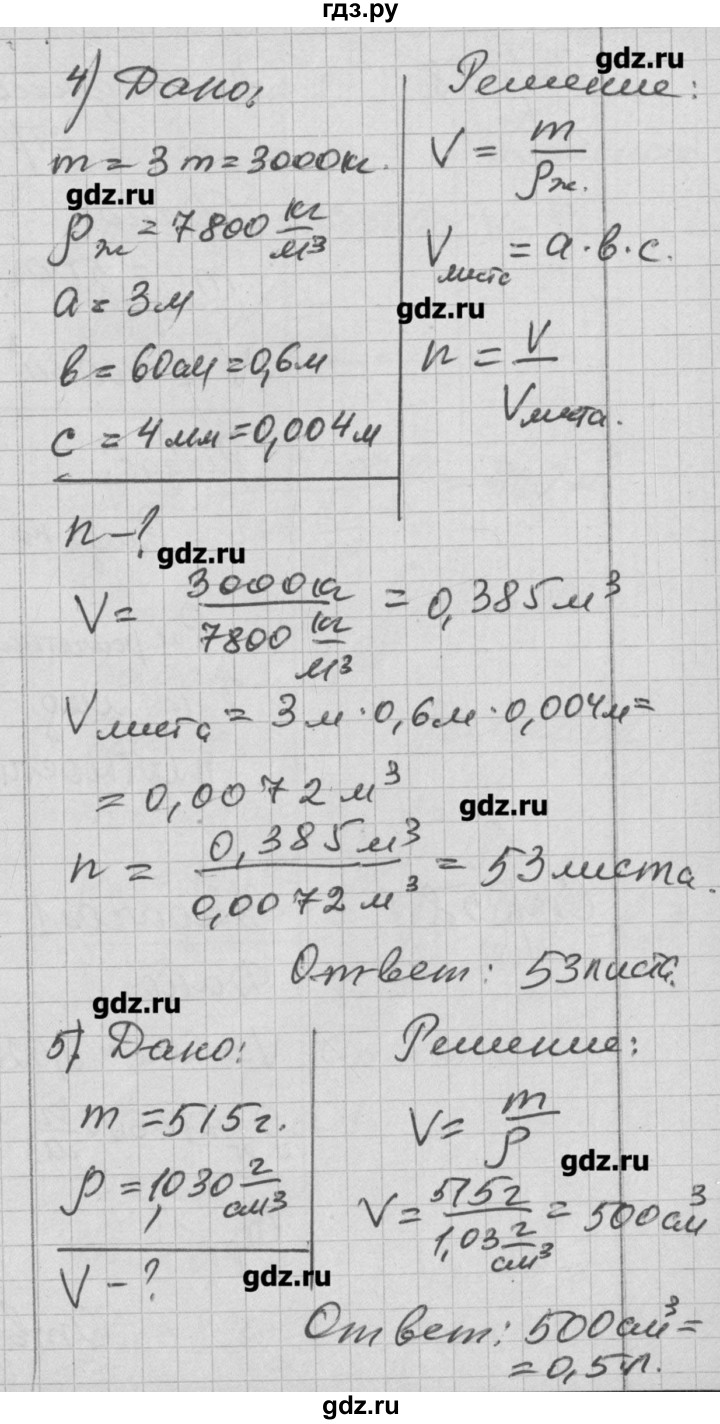 гдз.ру
gdz.ru
4) Дано:
m = 3 т = 3000 кг.
gdz.ru
ρж = 7800 кг/м³
a = 3 м
в = 60 см = 0,6 м
c = 4 мм = 0,004 м
n - ?
Решение:
V = m/ρж.
Vлиста = a · в · c.
gdz.ru
n = V/Vлиста.
gdz.ru
V = 3000 кг/7800 кг/м³ = 0,385 м³
Vлиста = 3 м · 0,6 м · 0,004 м =
= 0,0072 м³
gdz.ru
n = 0,385 м³/0,0072 м³ = 53 листа.
Ответ: 53 листа.
gdz.ru
5) Дано:
m = 515 г.
ρ = 1,030 г/см³
V - ?
gdz.ru
Решение:
V = m/ρ
gdz.ru
V = 515 г/1,03 г/см³ = 500 см³
Ответ: 500 см³ =
= 0,5 л.
gdz.ru